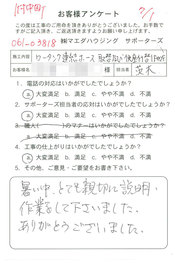 お客様アンケート
この度は工事のご用命を頂きありがとうございました。お手数で
すがご記入頂き、ご返送頂きますようお願い申し上げます。
061-03818
㈱マエダハウジング サポーターズ
工事内容
お客様名
様
担当者
1. 電話の対応はいかがでしたでしょうか?
大変満足 ○ 満足 ○ やや不満 ○ 不満
2. サポーターズ担当者の対応はいかがでしたでしょうか?
大変満足 ○ 満足 ○ やや不満 ○ 不満
のマナーはいかがでしたでしょうか?
大変満足 ○ 満足 ○ やや不満 ○ 不満
4. 工事の仕上がりはいかがでしたでしょうか?
大変満足 ○ 満足 ○ やや不満 ○ 不満
5. その他ご意見、ご要望をお聞かせください。
暑い中、とても親切に説明・
作業して下さいました。
ありがとうございました。